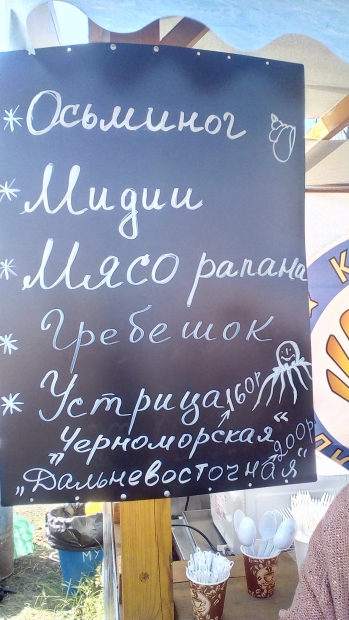 * Осьминог
* Мидии
* Мясо рапана
* Гребешок
* Устрица 160р
"Черноморская"
„Дальневосточная“ 200р